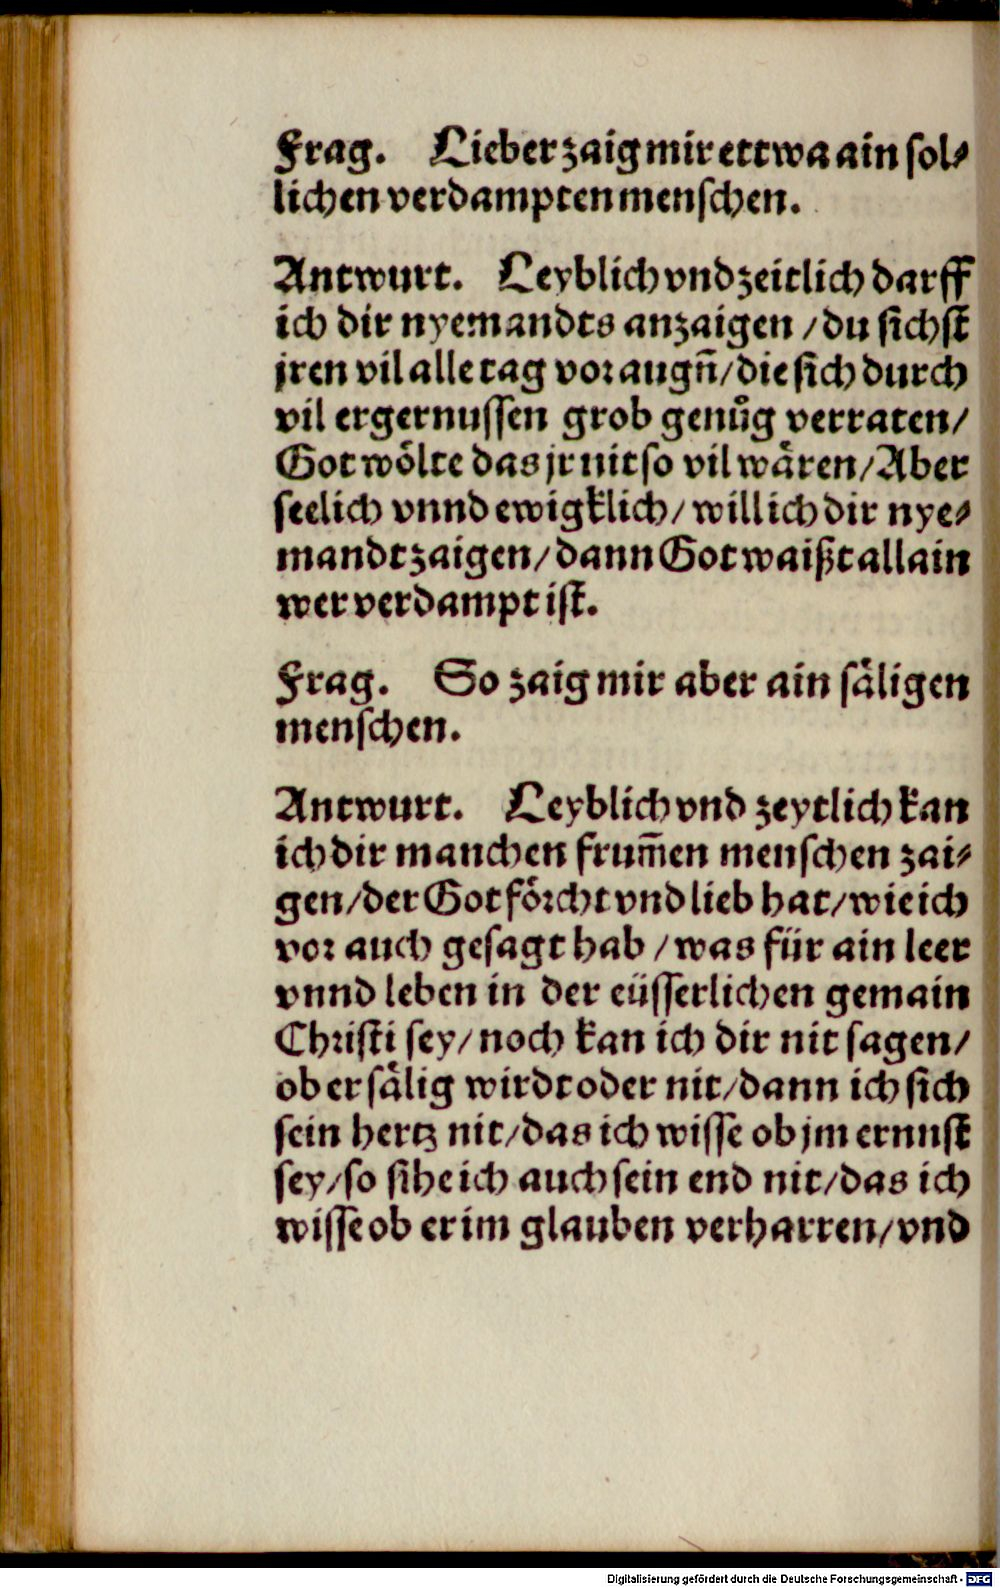 Frag. Lieber zaig mir ettwa ain sol⸗
lichen verdampten menschen.
Antwurt. Leyblich vnd zeitlich darff
ich dir nyemandts anzaigen / du sichst
jren vil alle tag vor augn̄/ die sich durch
vil ergernussen grob genůg verraten/
Got woͤlte das jr nit so vil waͤren/ Aber
seelich vnnd ewigklich/ will ich dir nye⸗
mandt zaigen/ dann Got waißt allain
wer verdampt ist.
Frag. So zaig mir aber ain saͤligen
menschen.
Antwurt. Leyblich vnd zeytlich kan
ich dir manchen frum̄en menschen zai⸗
gen/ der Got foͤrcht vnd lieb hat/ wie ich
vor auch gesagt hab / was für ain leer
vnnd leben in der eüsserlichen gemain
Christi sey/ noch kan ich dir nit sagen/
ob er saͤlig wirdt oder nit/ dann ich sich
sein hertz nit/ das ich wisse ob jm ernnst
sey/ so sihe ich auch sein end nit/ das ich
wisse ob er im glauben verharren/ vnd
Digitalisierung gefördert durch die Deutsche Forschungsgemeinschaft - DFG